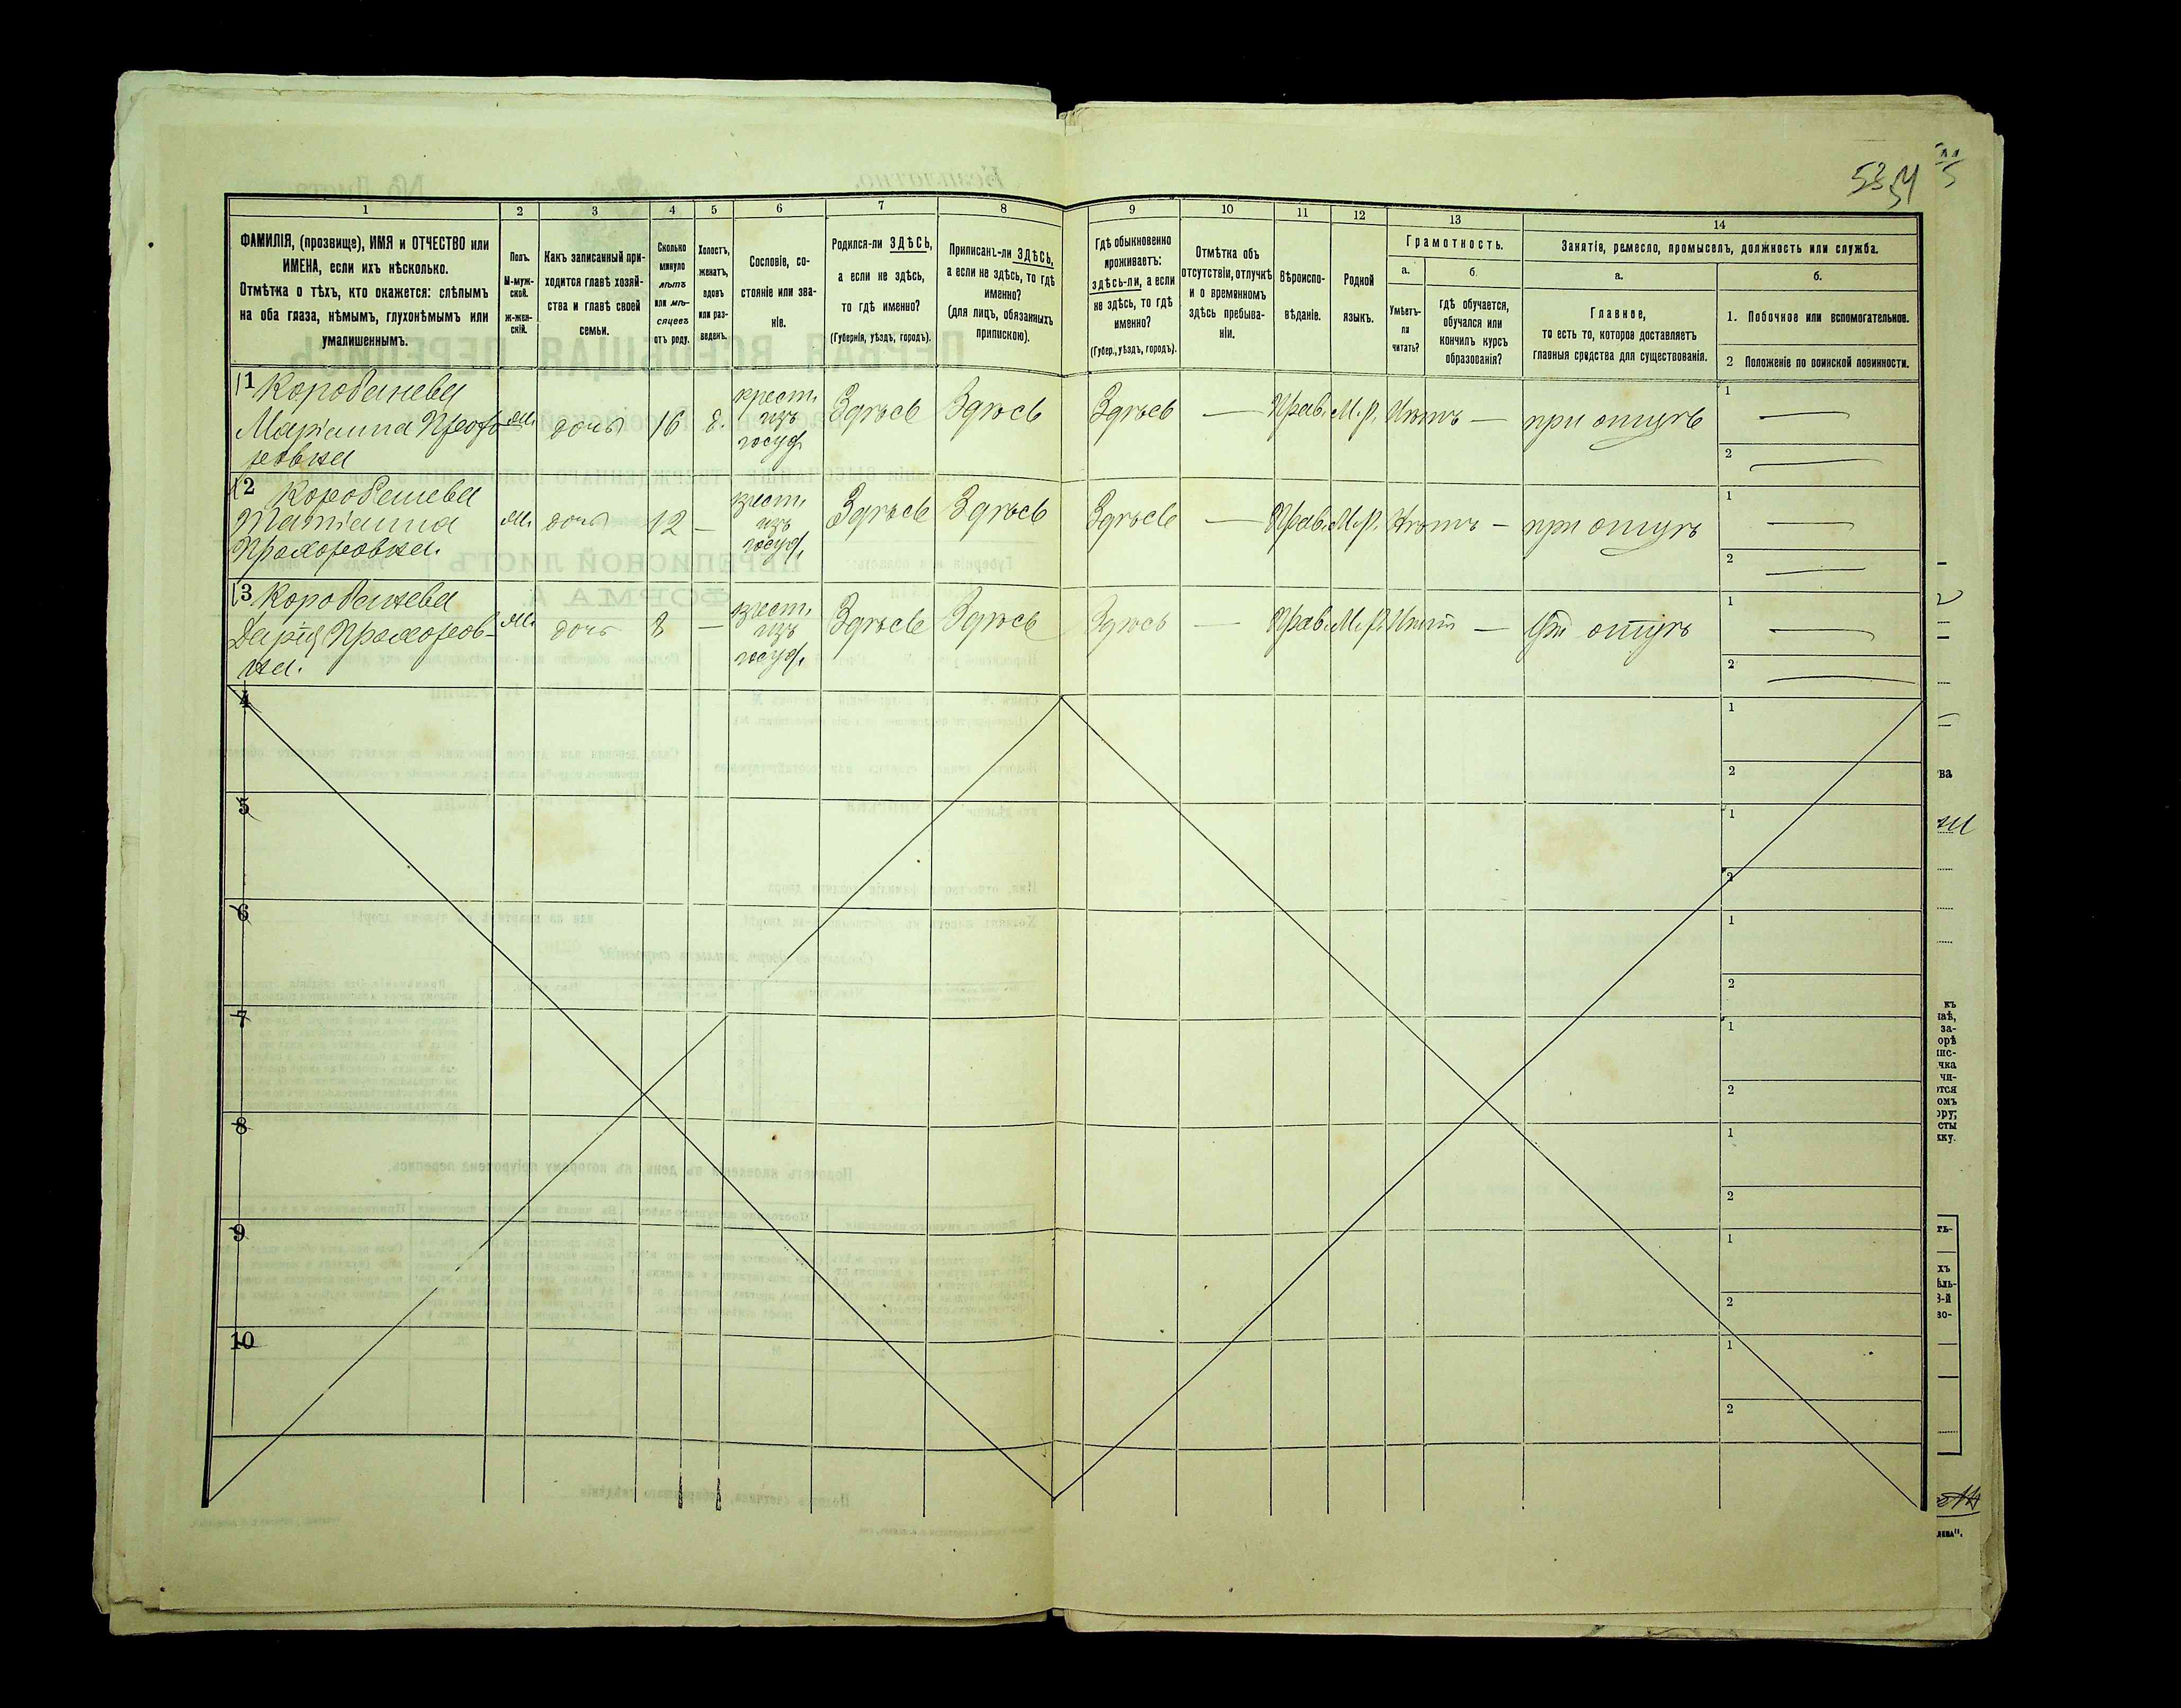 53 54
1
2
3
4
5
6
7
8
9
10
11
12
13
14
ФАМИЛІЯ, (прозвище), ИМЯ и ОТЧЕСТВО или
ИМЕНА, если ихъ нѣсколько.
Отмѣтка о тѣхъ, кто окажется: слѣпымъ
на оба глаза, нѣмымъ, глухонѣмымъ или
умалишеннымъ.
Полъ.
М-муж-
ской.
ж-жен-
скій.
Какъ записанный при-
ходится главѣ хозяй-
ства и главѣ своей
семьи.
Сколько
минуло
лѣтъ
или мѣ-
сяцевъ
отъ роду.
Холостъ,
женатъ,
вдовъ
или раз-
веденъ.
Сословіе, со-
стояніе или зва-
ніе.
Родился-ли ЗДѢСЬ,
а если не здѣсь,
то гдѣ именно?
(Губернія, уѣздъ, городъ).
Приписанъ-ли ЗДѢСЬ,
а если не здѣсь, то гдѣ
именно?
(для лицъ, обязанныхъ
припискою).
Гдѣ обыкновенно
проживаетъ:
здѣсь-ли, а если
не здѣсь, то гдѣ
именно?
(Губер., уѣздъ, городъ).
Отмѣтка объ
отсутствіи, отлучкѣ
и о временномъ
здѣсь пребыва-
ніи.
Вѣроиспо-
вѣданіе.
Родной
языкъ.
Грамотность.
а.
Умѣетъ-
ли
читать?
б.
гдѣ обучается,
обучался или
кончилъ курсъ
образованія?
Занятія, ремесло, промыселъ, должность или служба.
а.
Главное,
то есть то, которое доставляетъ
главныя средства для существованія.
б.
1. Побочное или вспомогательное.
2 Положеніе по воинской повинности.
1 Коробанева
Маріанна Прохо
ровна
дочь 16
крест.
изъ
госуд.
Здѣсь Здѣсь Здѣсь — Прав. М.р. Нѣтъ — при отцѣ
1 —
2 —
2 Коробанева
Татіанна
Прохоровна.
дочь 12 —
крест.
изъ
госуд.
Здѣсь Здѣсь Здѣсь — Прав. М.р. Нѣтъ — при отцѣ
1 —
2 —
3 Коробанева
Дарія Прохоров-
на.
дочь 8 —
крест.
изъ
госуд.
Здѣсь Здѣсь Здѣсь — Прав. М.р. Нѣтъ — при отцѣ
1 —
2 —
4
1
2
5
1
2
6
1
2
7
1
2
8
1
2
9
1
2
10
1
2